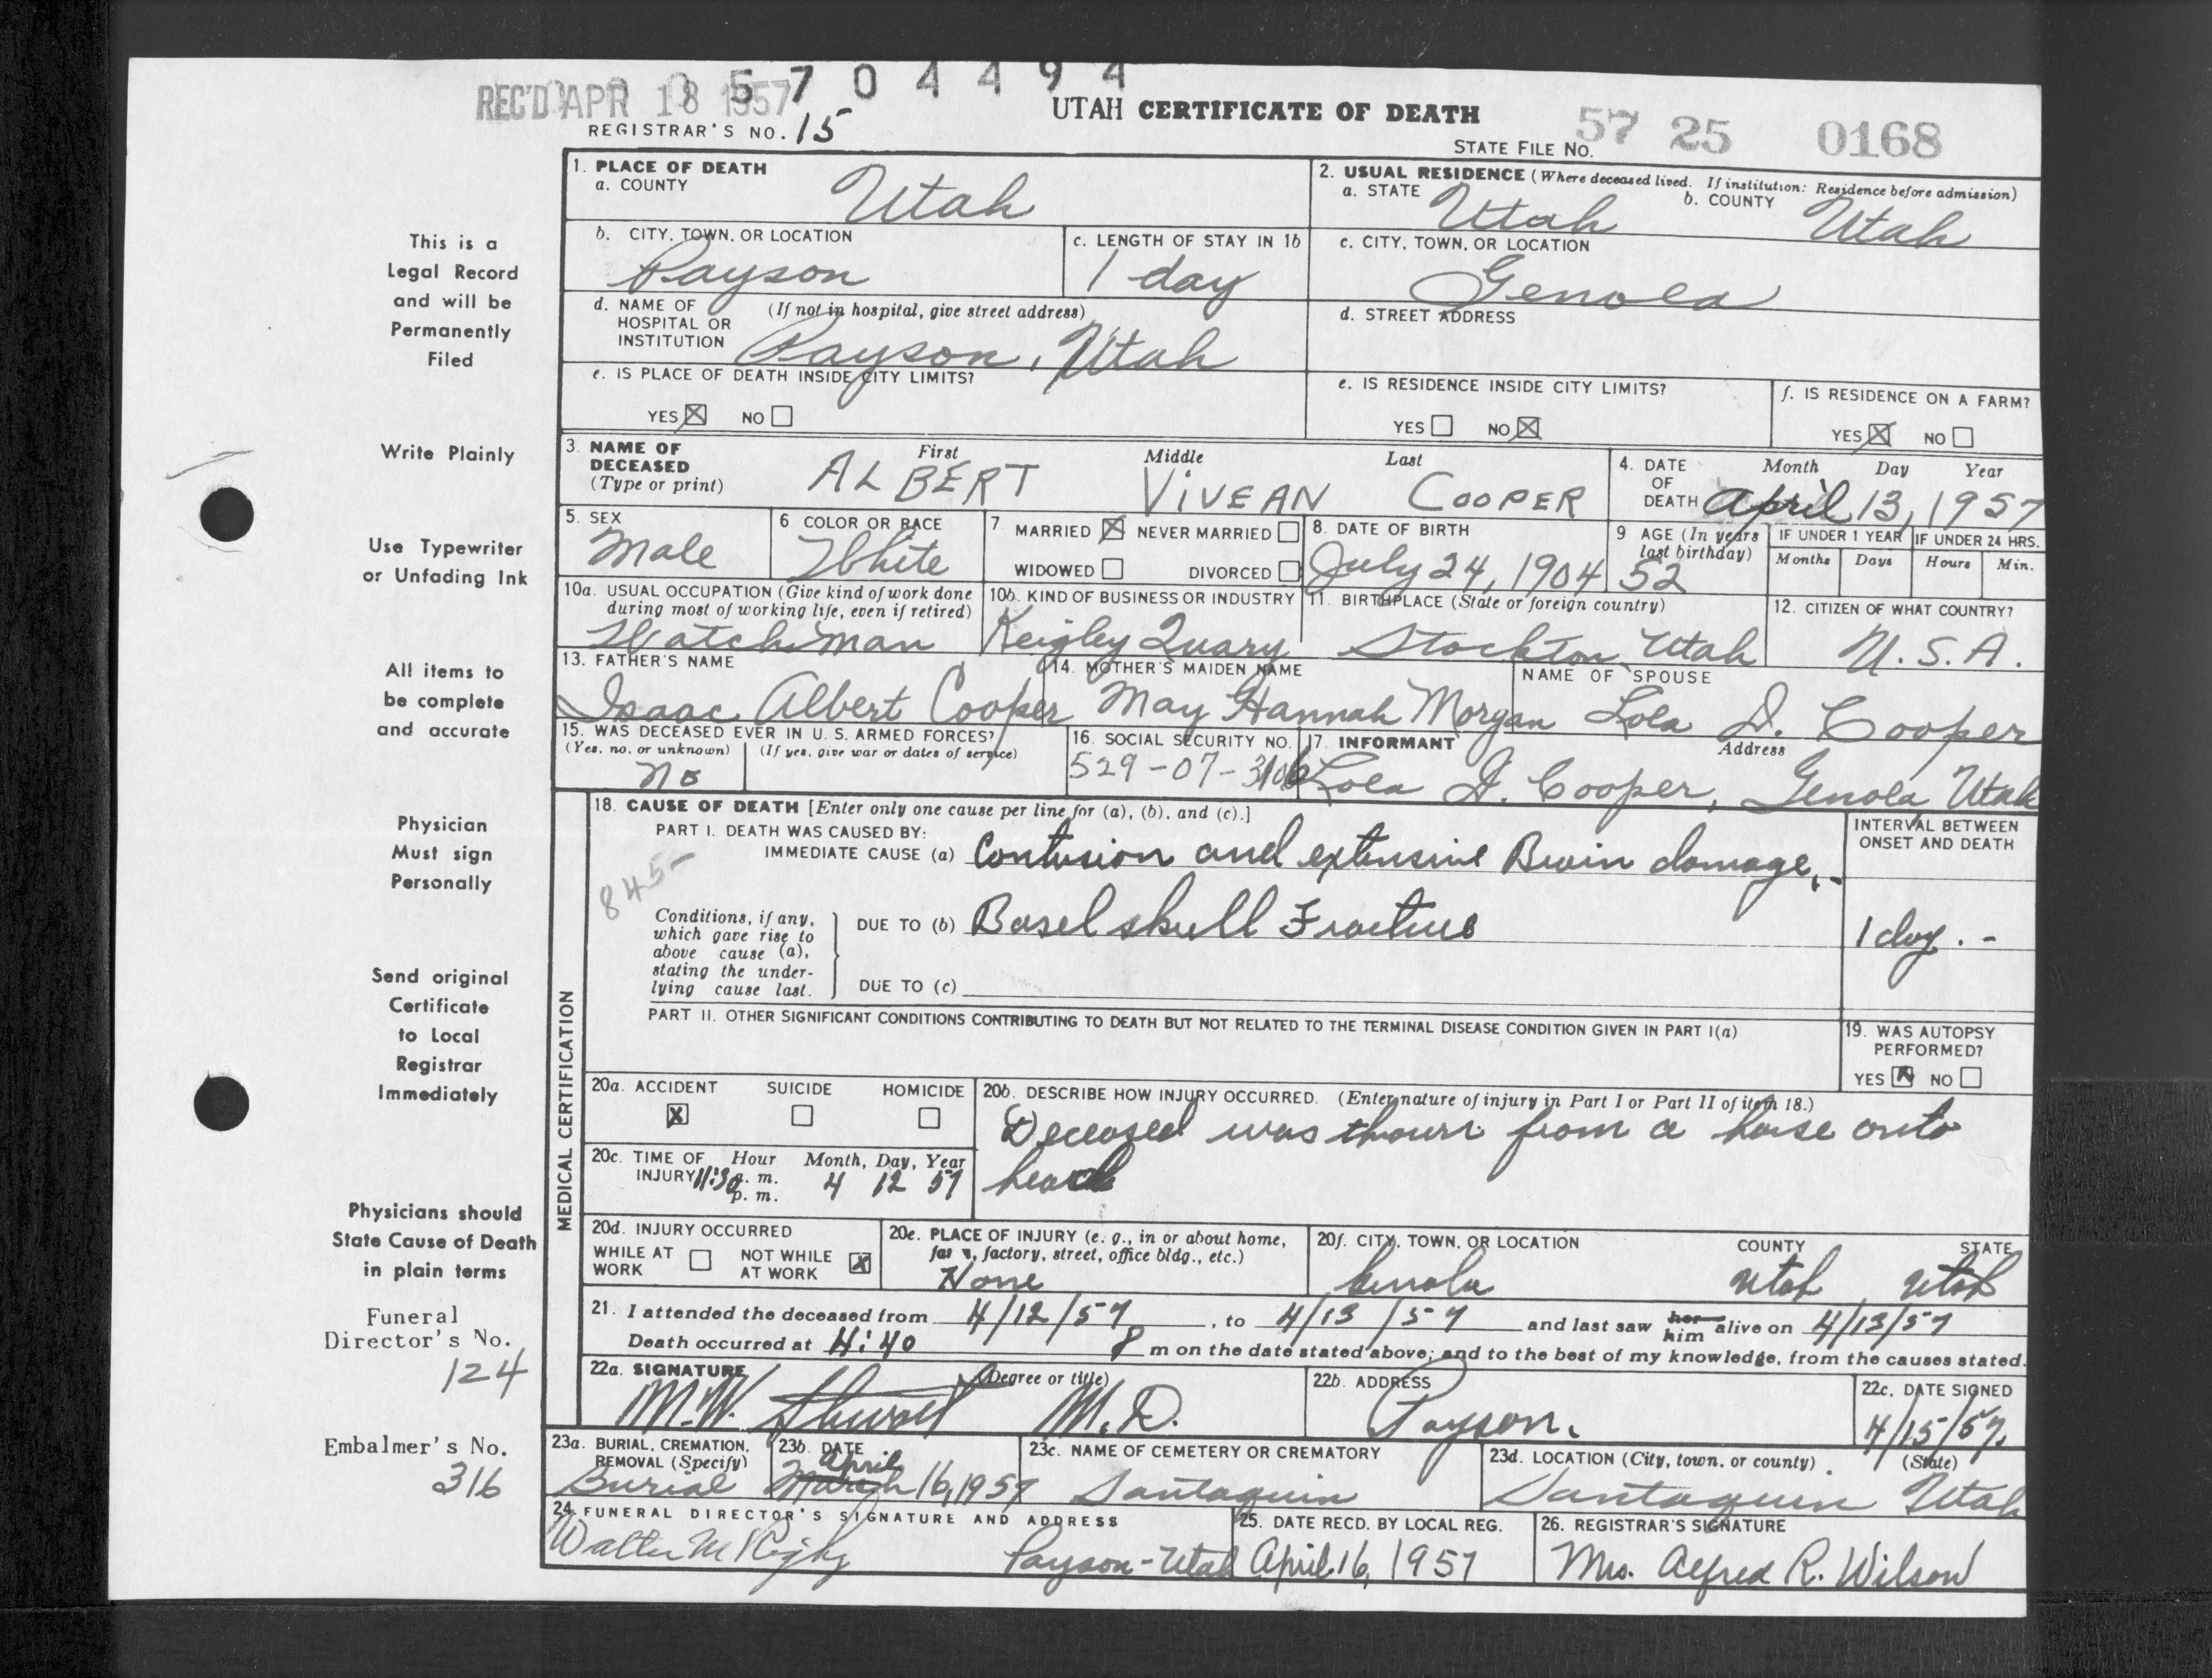 REC'D APR 18 1957
5 7 0 4 4 9 4
REGISTRAR'S NO. 15
UTAH CERTIFICATE OF DEATH
STATE FILE NO. 57 25 0168
This is a
Legal Record
and will be
Permanently
Filed
Write Plainly
Use Typewriter
or Unfading Ink
All items to
be complete
and accurate
Physician
Must sign
Personally
Send original
Certificate
to Local
Registrar
Immediately
Physicians should
State Cause of Death
in plain terms
Funeral
Director's No.
124
Embalmer's No.
316
1. PLACE OF DEATH
a. COUNTY Utah
2. USUAL RESIDENCE (Where deceased lived. If institution: Residence before admission)
a. STATE Utah b. COUNTY Utah
b. CITY, TOWN, OR LOCATION
Payson
c. LENGTH OF STAY IN 1b
1 day
c. CITY, TOWN, OR LOCATION
Genola
d. NAME OF HOSPITAL OR INSTITUTION (If not in hospital, give street address)
Payson, Utah
d. STREET ADDRESS
e. IS PLACE OF DEATH INSIDE CITY LIMITS?
YES ☒ NO ☐
e. IS RESIDENCE INSIDE CITY LIMITS?
YES ☐ NO ☒
f. IS RESIDENCE ON A FARM?
YES ☒ NO ☐
3. NAME OF DECEASED (Type or print)
First Middle Last
ALBERT VIVEAN COOPER
4. DATE OF DEATH Month Day Year
April 13, 1957
5. SEX
Male
6. COLOR OR RACE
White
7. MARRIED ☒ NEVER MARRIED ☐
WIDOWED ☐ DIVORCED ☐
8. DATE OF BIRTH
July 24, 1904
9 AGE (In years last birthday)
52
IF UNDER 1 YEAR
Months Days
IF UNDER 24 HRS.
Hours Min.
10a. USUAL OCCUPATION (Give kind of work done during most of working life, even if retired)
Watchman
10b. KIND OF BUSINESS OR INDUSTRY
Keigley Quary
11. BIRTHPLACE (State or foreign country)
Stockton Utah
12. CITIZEN OF WHAT COUNTRY?
U.S.A.
13. FATHER'S NAME
Isaac Albert Cooper
14. MOTHER'S MAIDEN NAME
May Hannah Morgan
NAME OF SPOUSE
Lola D. Cooper
15. WAS DECEASED EVER IN U.S. ARMED FORCES?
(Yes, no, or unknown) (If yes, give war or dates of service)
no
16. SOCIAL SECURITY NO.
529-07-
17. INFORMANT Address
Lola D. Cooper, Genola Utah
MEDICAL CERTIFICATION
18. CAUSE OF DEATH [Enter only one cause per line for (a), (b), and (c).]
PART I. DEATH WAS CAUSED BY:
IMMEDIATE CAUSE (a) Contusion and extensive Brain damage.
845-
Conditions, if any, which gave rise to above cause (a), stating the underlying cause last.
DUE TO (b) Basel skull Fracture
DUE TO (c)
INTERVAL BETWEEN ONSET AND DEATH
1 day. -
PART II. OTHER SIGNIFICANT CONDITIONS CONTRIBUTING TO DEATH BUT NOT RELATED TO THE TERMINAL DISEASE CONDITION GIVEN IN PART I(a)
19. WAS AUTOPSY PERFORMED?
YES ☒ NO ☐
20a. ACCIDENT ☒ SUICIDE ☐ HOMICIDE ☐
20b. DESCRIBE HOW INJURY OCCURRED. (Enter nature of injury in Part I or Part II of item 18.)
Deceased was thown from a horse onto
head
20c. TIME OF INJURY Hour Month, Day, Year
11:30 a. m. p. m. 4 12 57
20d. INJURY OCCURRED
WHILE AT WORK ☐ NOT WHILE AT WORK ☒
20e. PLACE OF INJURY (e. g., in or about home, farm, factory, street, office bldg., etc.)
None
20f. CITY, TOWN, OR LOCATION COUNTY STATE
Genola Utah Utah
21. I attended the deceased from 4/12/57, to 4/13/57 and last saw her him alive on 4/13/57
Death occurred at 4:40 P m on the date stated above; and to the best of my knowledge, from the causes stated.
22a. SIGNATURE (Degree or title)
M.W. Stewart M.D.
22b. ADDRESS
Payson.
22c. DATE SIGNED
4/15/57
23a. BURIAL, CREMATION, REMOVAL (Specify)
Burial
23b. DATE
April
March 16, 1957
23c. NAME OF CEMETERY OR CREMATORY
Santaquin
23d. LOCATION (City, town, or county) (State)
Santaquin Utah
24. FUNERAL DIRECTOR'S SIGNATURE AND ADDRESS
Walter M Rigby Payson-Utah
25. DATE RECD. BY LOCAL REG.
April 16, 1957
26. REGISTRAR'S SIGNATURE
Mrs. Alfred R. Wilson